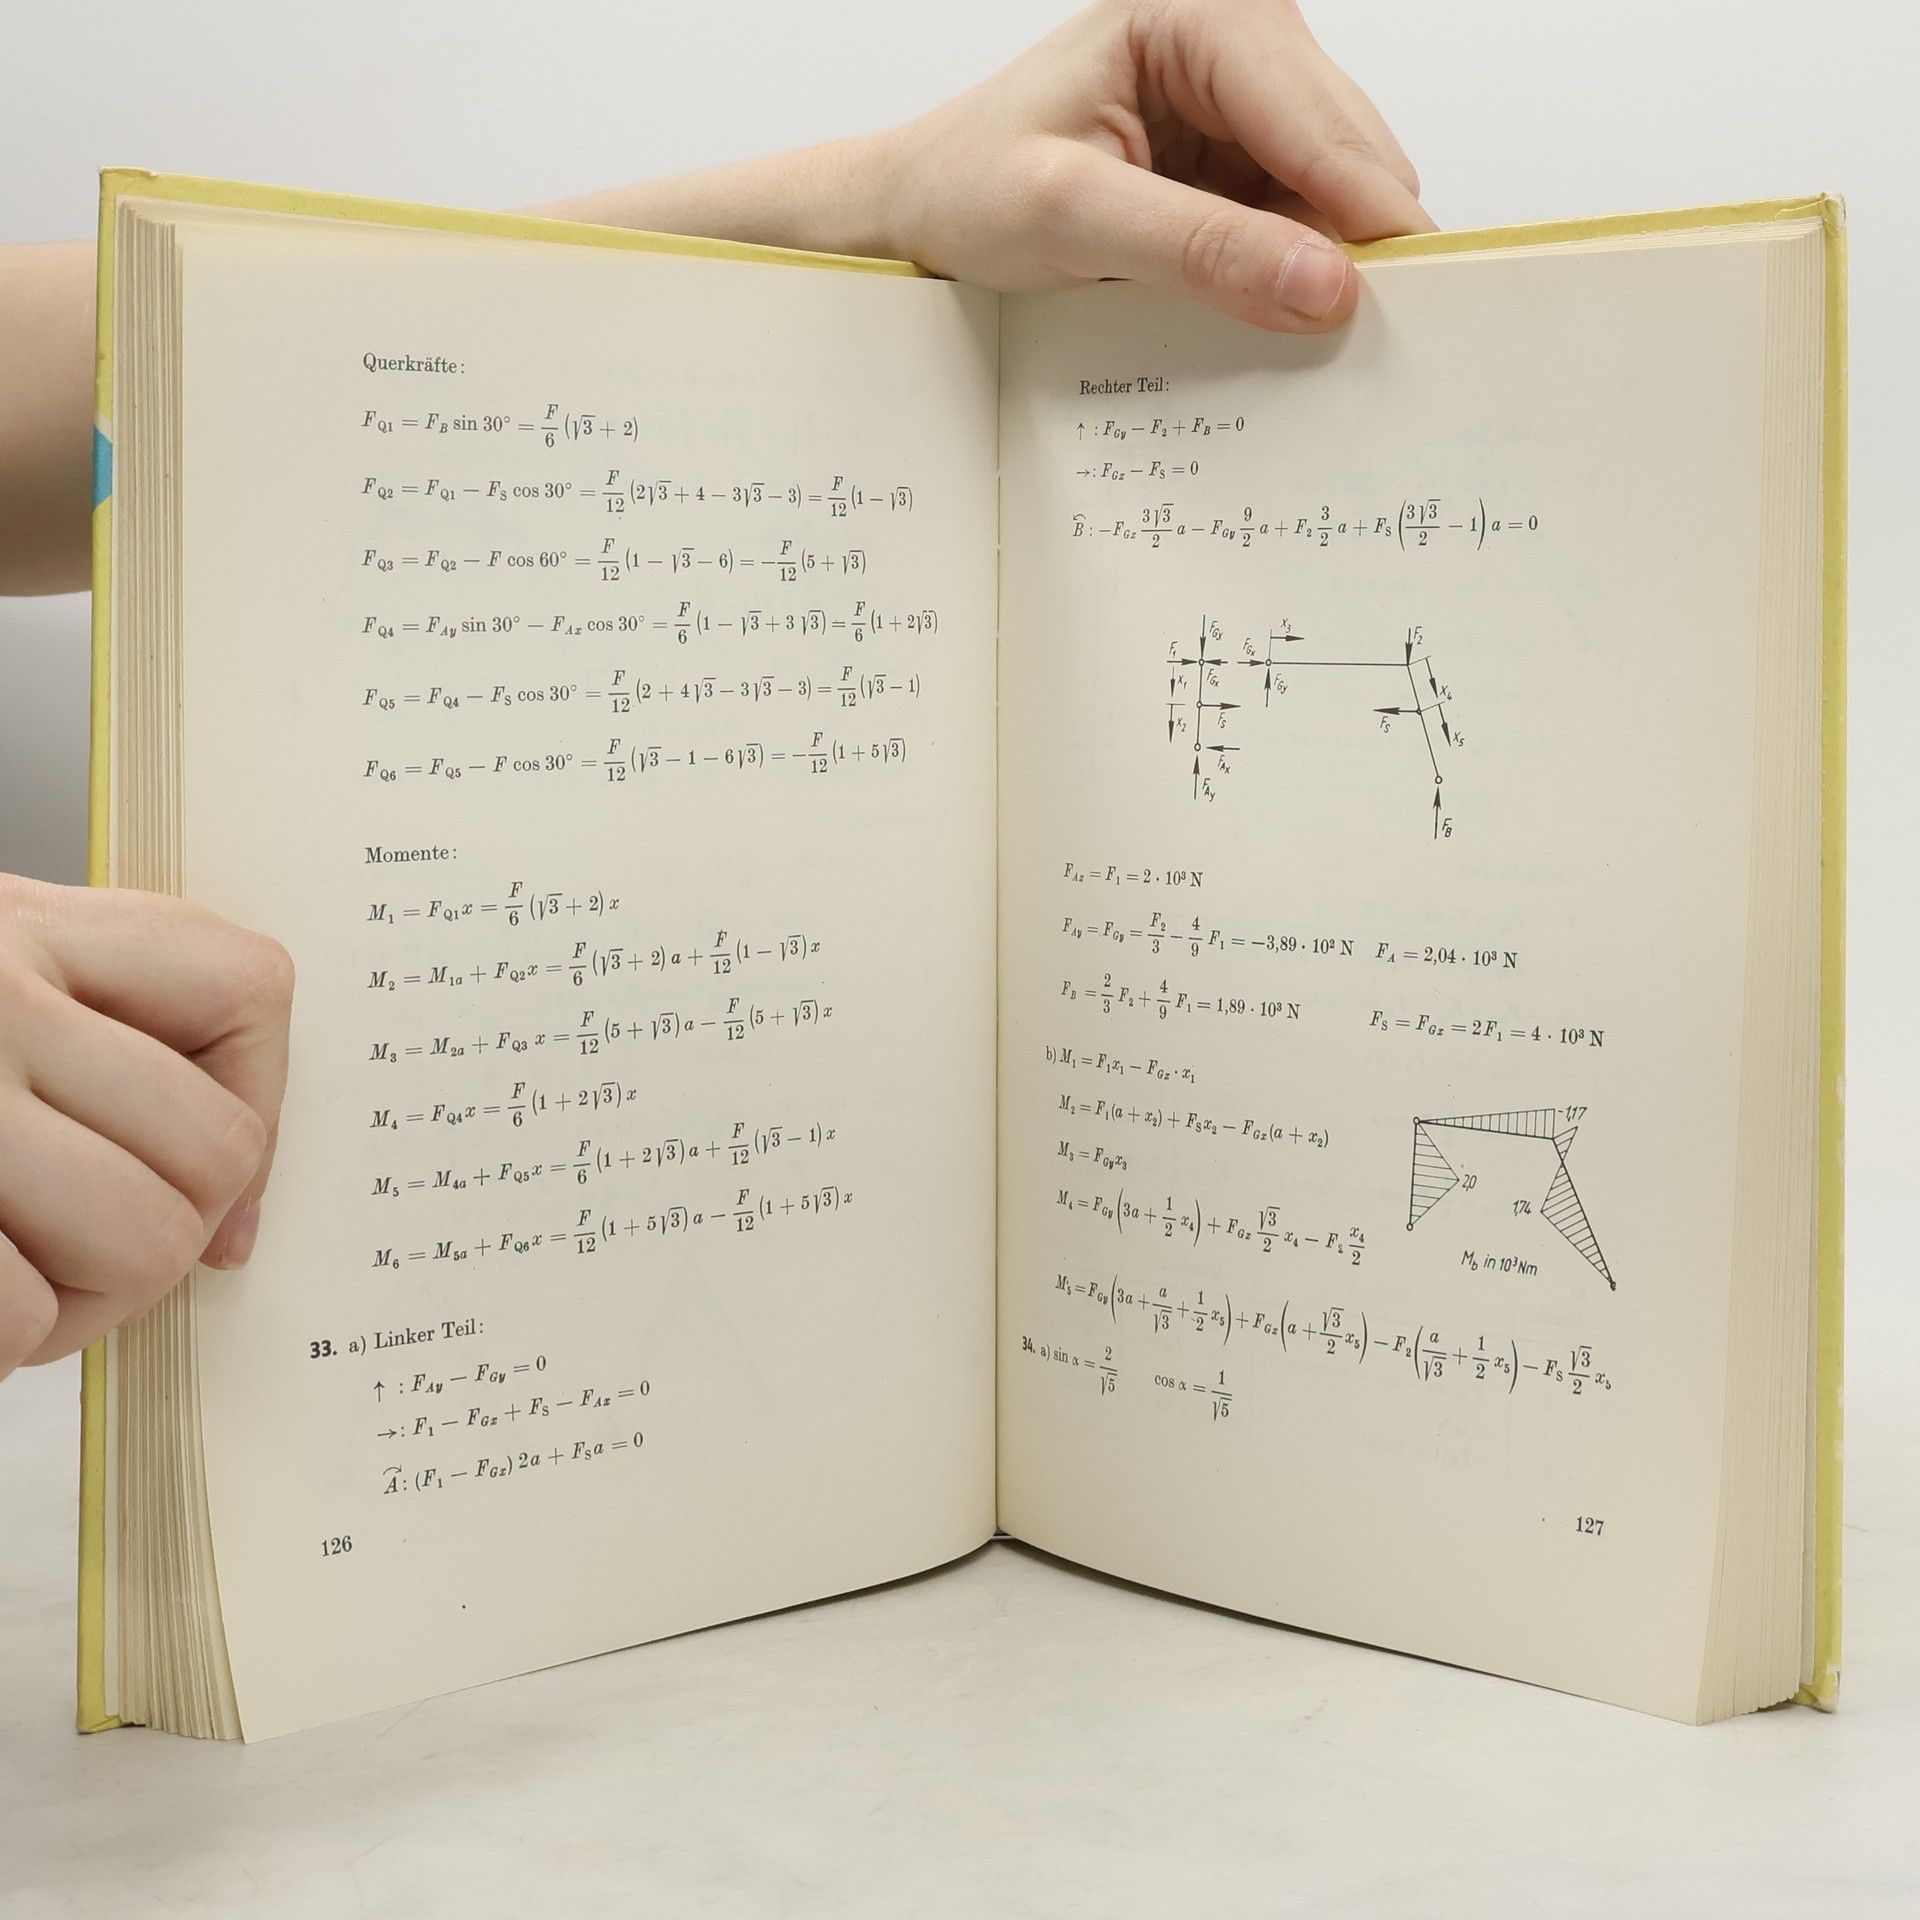 Querkräfte:
F_Q1 = F_B sin 30° = F/6 (√3 + 2)
F_Q2 = F_Q1 − F_S cos 30° = F/12 (2√3 + 4 − 3√3 − 3) = F/12 (1 − √3)
F_Q3 = F_Q2 − F cos 60° = F/12 (1 − √3 − 6) = −F/12 (5 + √3)
F_Q4 = F_Ay sin 30° − F_Ax cos 30° = F/6 (1 − √3 + 3√3) = F/6 (1 + 2√3)
F_Q5 = F_Q4 − F_S cos 30° = F/12 (2 + 4√3 − 3√3 − 3) = F/12 (√3 − 1)
F_Q6 = F_Q5 − F cos 30° = F/12 (√3 − 1 − 6√3) = −F/12 (1 + 5√3)
Momente:
M_1 = F_Q1 x = F/6 (√3 + 2) x
M_2 = M_1a + F_Q2 x = F/6 (√3 + 2) a + F/12 (1 − √3) x
M_3 = M_2a + F_Q3 x = F/12 (5 + √3) a − F/12 (5 + √3) x
M_4 = F_Q4 x = F/6 (1 + 2√3) x
M_5 = M_4a + F_Q5 x = F/6 (1 + 2√3) a + F/12 (√3 − 1) x
M_6 = M_5a + F_Q6 x = F/12 (1 + 5√3) a − F/12 (1 + 5√3) x
33. a) Linker Teil:
↑ : F_Ay − F_Gy = 0
→: F_1 − F_Gx + F_S − F_Ax = 0
A: (F_1 − F_Gx) 2a + F_S a = 0
126
Rechter Teil:
↑ : F_Gy − F_2 + F_B = 0
→: F_Gx − F_S = 0
B: −F_Gx 3√3/2 a − F_Gy 9/2 a + F_2 3/2 a + F_S (3√3/2 − 1) a = 0
F_Gy
x_3
F_2
F_1
F_Gx
F_Gx
x_1
F_Gy
x_4
x_2
F_S
F_S
x_5
F_Ax
F_Ay
F_B
F_Ax = F_1 = 2 · 10³ N
F_Ay = F_Gy = F_2/3 − 4/9 F_1 = −3,89 · 10² N F_A = 2,04 · 10³ N
F_B = 2/3 F_2 + 4/9 F_1 = 1,89 · 10³ N F_S = F_Gx = 2F_1 = 4 · 10³ N
b) M_1 = F_1 x_1 − F_Gx · x_1
M_2 = F_1(a + x_2) + F_S x_2 − F_Gx(a + x_2)
M_3 = F_Gy x_3
M_4 = F_Gy (3a + 1/2 x_4) + F_Gx √3/2 x_4 − F_2 x_4/2
−1,17
2,0
1,74
M_b in 10³ Nm
M_5 = F_Gy (3a + a/√3 + 1/2 x_5) + F_Gx (a + √3/2 x_5) − F_2 (a/√3 + 1/2 x_5) − F_S √3/2 x_5
34. a) sin α = 2/√5 cos α = 1/√5
127